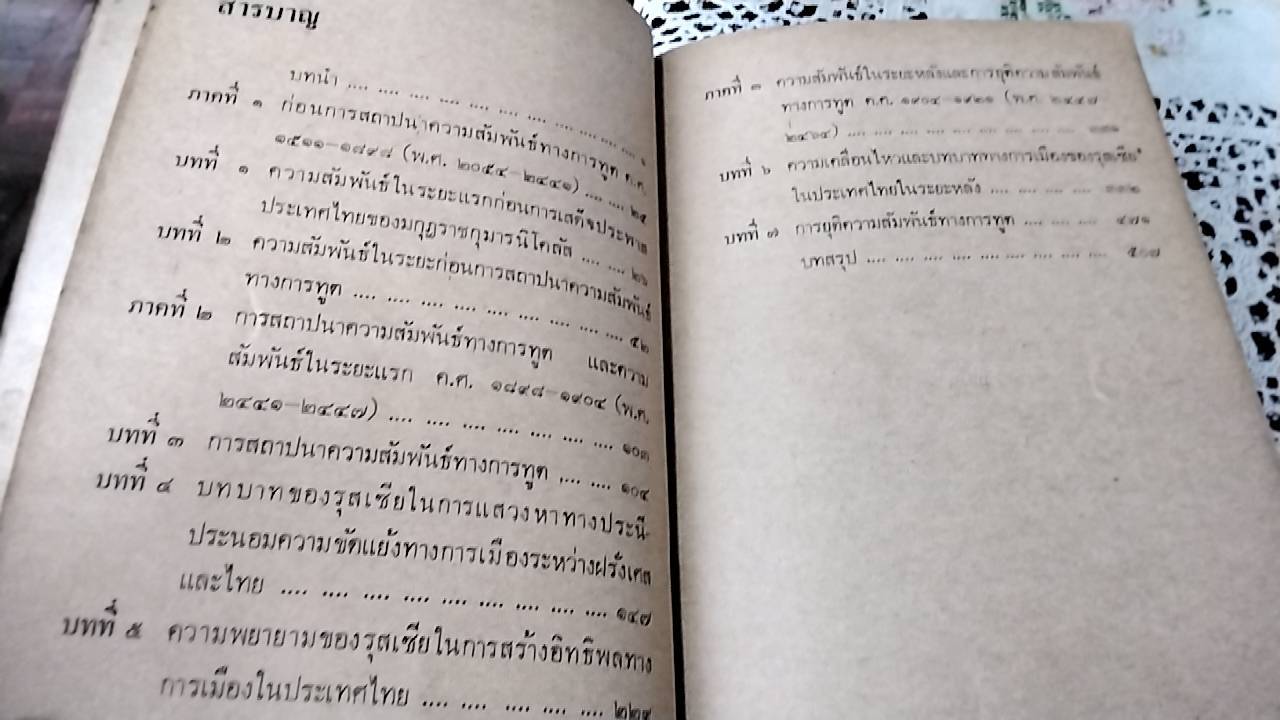 สารบาญ
บทนำ .... .... .... .... .... .... .... .... .... .... ๑
ภาคที่ ๑ ก่อนการสถาปนาความสัมพันธ์ทางการทูต ค.ศ.
๑๕๑๑-๑๘๙๘ (พ.ศ. ๒๐๕๔-๒๔๔๑) .... .... ๒๕
บทที่ ๑ ความสัมพันธ์ในระยะแรกก่อนการเสด็จประพาส
ประเทศไทยของมกุฎราชกุมารนิโคลัส .... .... ๒๖
บทที่ ๒ ความสัมพันธ์ในระยะก่อนการสถาปนาความสัมพันธ์
ทางการทูต .... .... .... .... .... .... .... .... ๕๒
ภาคที่ ๒ การสถาปนาความสัมพันธ์ทางการทูต และความ
สัมพันธ์ในระยะแรก ค.ศ. ๑๘๙๘-๑๙๐๔ (พ.ศ.
๒๔๔๑-๒๔๔๗) .... .... .... .... .... .... .... ๑๐๓
บทที่ ๓ การสถาปนาความสัมพันธ์ทางการทูต .... .... ๑๐๔
บทที่ ๔ บทบาทของรุสเซียในการแสวงหาทางประนี-
ประนอมความขัดแย้งทางการเมืองระหว่างฝรั่งเศส
และไทย .... .... .... .... .... .... .... .... .... ๑๔๗
บทที่ ๕ ความพยายามของรุสเซียในการสร้างอิทธิพลทาง
การเมืองในประเทศไทย .... .... .... .... ....
ภาคที่ ๓ ความสัมพันธ์ในระยะหลังและการยุติความสัมพันธ์
ทางการทูต ค.ศ. ๑๙๐๔-๑๙๒๑ (พ.ศ. ๒๔๔๗
๒๔๖๔) .... .... .... .... .... .... .... ....
บทที่ ๖ ความเคลื่อนไหวและบทบาททางการเมืองของรุสเซีย
ในประเทศไทยในระยะหลัง .... .... .... ....
บทที่ ๗ การยุติความสัมพันธ์ทางการทูต .... .... .... ๔๗๑
บทสรุป .... .... .... .... .... .... .... .... .... ๕๐๗